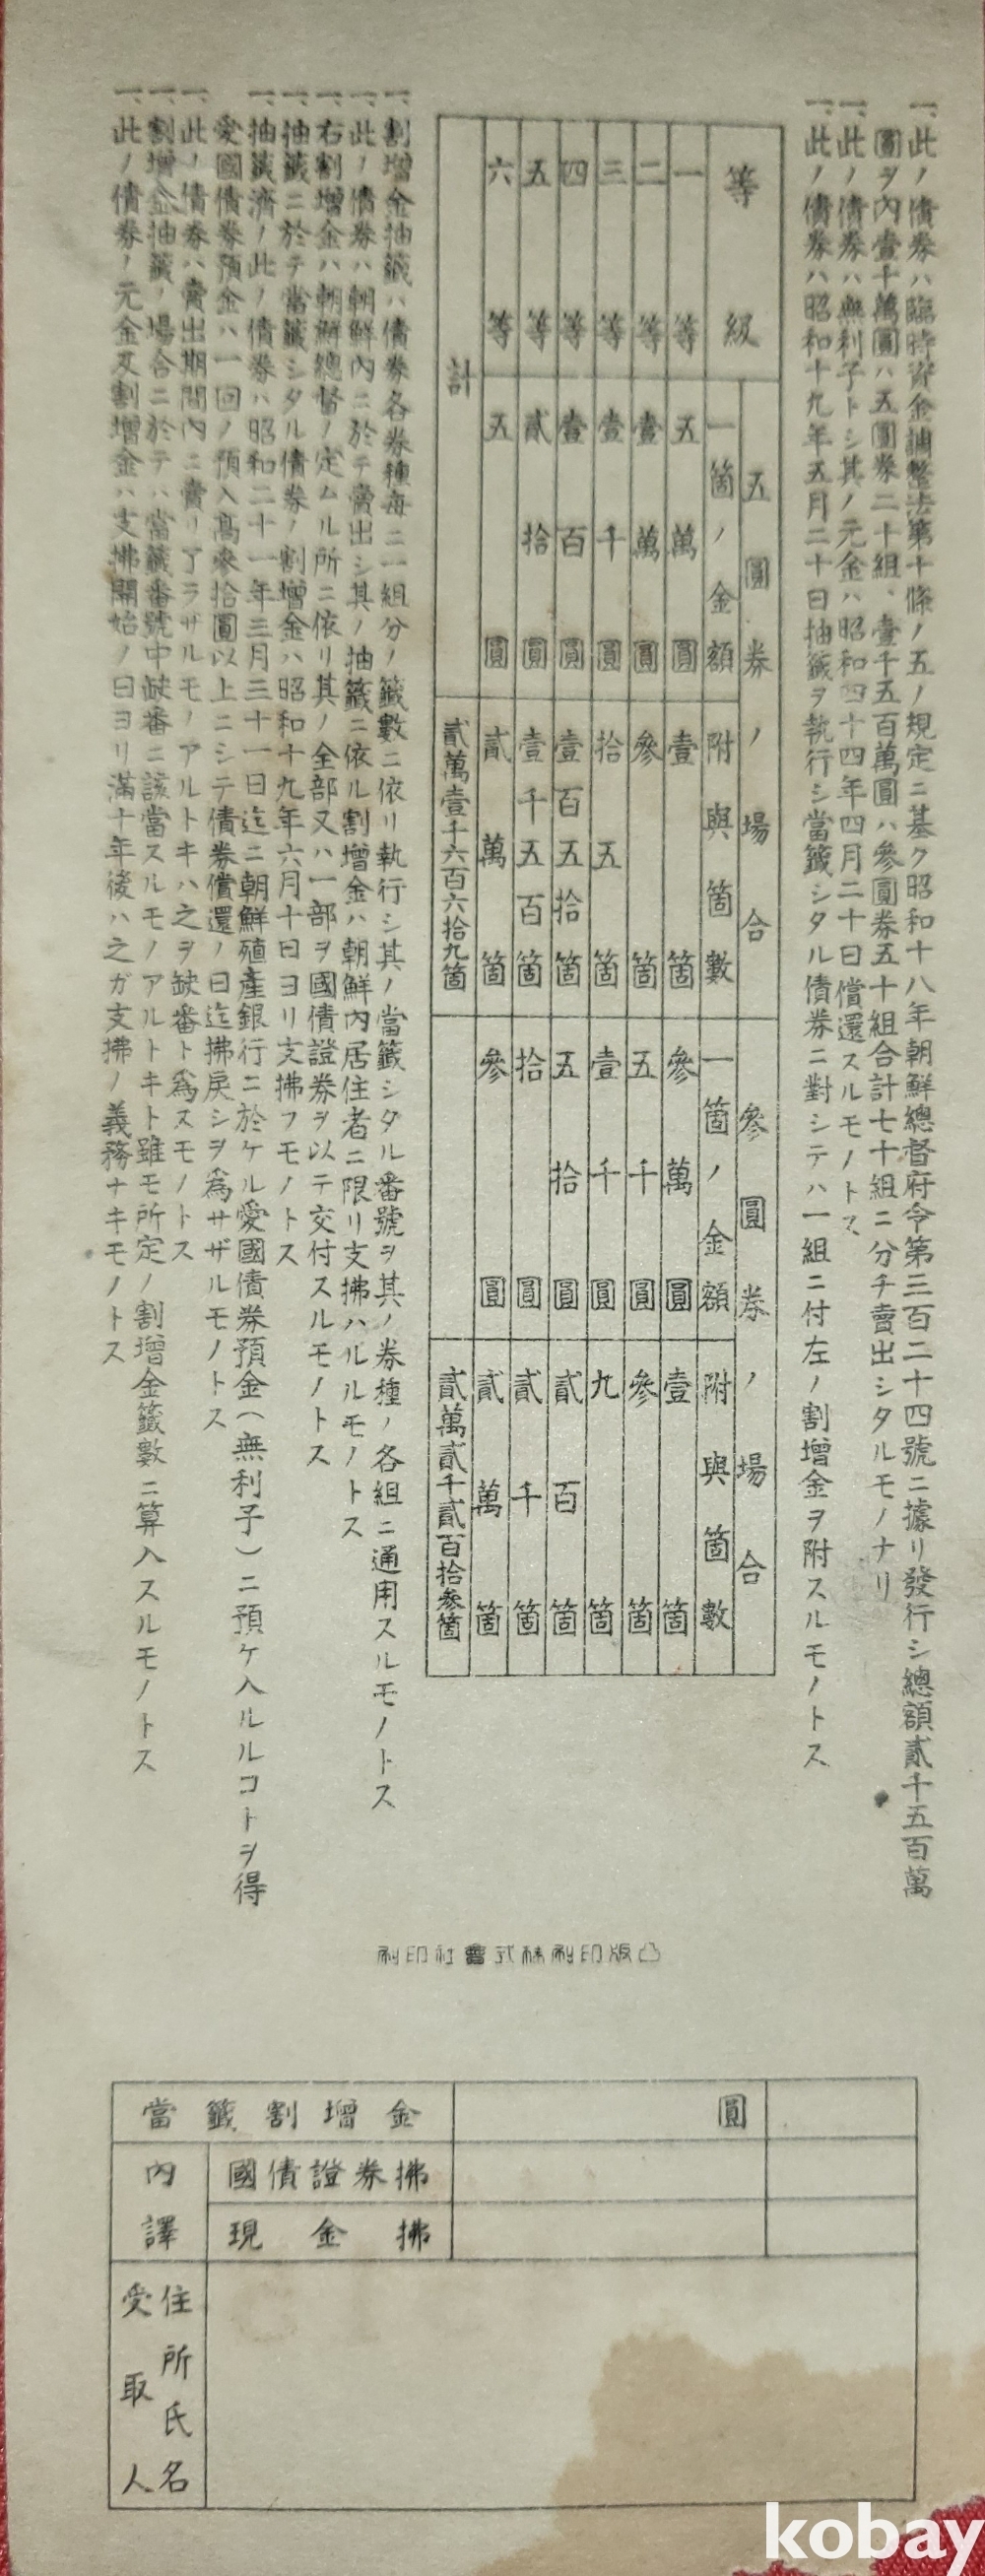 一、此ノ債券ハ臨時資金調整法第十條ノ五ノ規定ニ基ク昭和十八年朝鮮總督府令第三百二十四號ニ據リ發行シ總額貳千五百萬
圓ヲ內壹千萬圓ハ五圓券二十組、壹千五百萬圓ハ參圓券五十組合計七十組ニ分チ賣出シタルモノナリ
一、此ノ債券ハ無利子トシ其ノ元金ハ昭和四十四年四月二十日償還スルモノトス
一、此ノ債券ハ昭和十九年五月二十日抽籤ヲ執行シ當籤シタル債券ニ對シテハ一組ニ付左ノ割增金ヲ附スルモノトス
等級 五圓券ノ場合 參圓券ノ場合
一箇ノ金額 附與箇數 一箇ノ金額 附與箇數
一等 五萬圓 壹箇 參萬圓 壹箇
二等 壹萬圓 參箇 五千圓 參箇
三等 壹千圓 拾五箇 壹千圓 九箇
四等 壹百圓 壹百五拾箇 五拾圓 貳百箇
五等 貳拾圓 壹千五百箇 拾圓 貳千箇
六等 五圓 貳萬箇 參圓 貳萬箇
計 貳萬壹千六百六拾九箇 貳萬貳千貳百拾參箇
一、割增金抽籤ハ債券各券種每ニ一組分ノ籤數ニ依リ執行シ其ノ當籤シタル番號ヲ其ノ券種ノ各組ニ通用スルモノトス
一、此ノ債券ハ朝鮮內ニ於テ賣出シ其ノ抽籤ニ依ル割增金ハ朝鮮內居住者ニ限リ支拂ハルルモノトス
一、右割增金ハ朝鮮總督ノ定ムル所ニ依リ其ノ全部又ハ一部ヲ國債證券ヲ以テ交付スルモノトス
一、抽籤ニ於テ當籤シタル債券ノ割增金ハ昭和十九年六月十日ヨリ支拂フモノトス
一、抽籤濟ノ此ノ債券ハ昭和二十一年三月三十一日迄ニ朝鮮殖產銀行ニ於ケル愛國債券預金(無利子)ニ預ケ入ルルコトヲ得
愛國債券預金ハ一回ノ預入高參拾圓以上ニシテ債券償還ノ日迄拂戾シヲ爲サザルモノトス
一、此ノ債券ハ賣出期間內ニ賣リ了ラザルモノアルトキハ之ヲ缺番ト爲スモノトス
一、割增金抽籤ノ場合ニ於テハ當籤番號中缺番ニ該當スルモノアルトキト雖モ所定ノ割增金籤數ニ算入スルモノトス
一、此ノ債券ノ元金及割增金ハ支拂開始ノ日ヨリ滿十年後ハ之ガ支拂ノ義務ナキモノトス
刷印社會式株刷印版凸
當籤割增金 圓
內譯 國債證券拂
現金拂
受取人 住所氏名
kobay